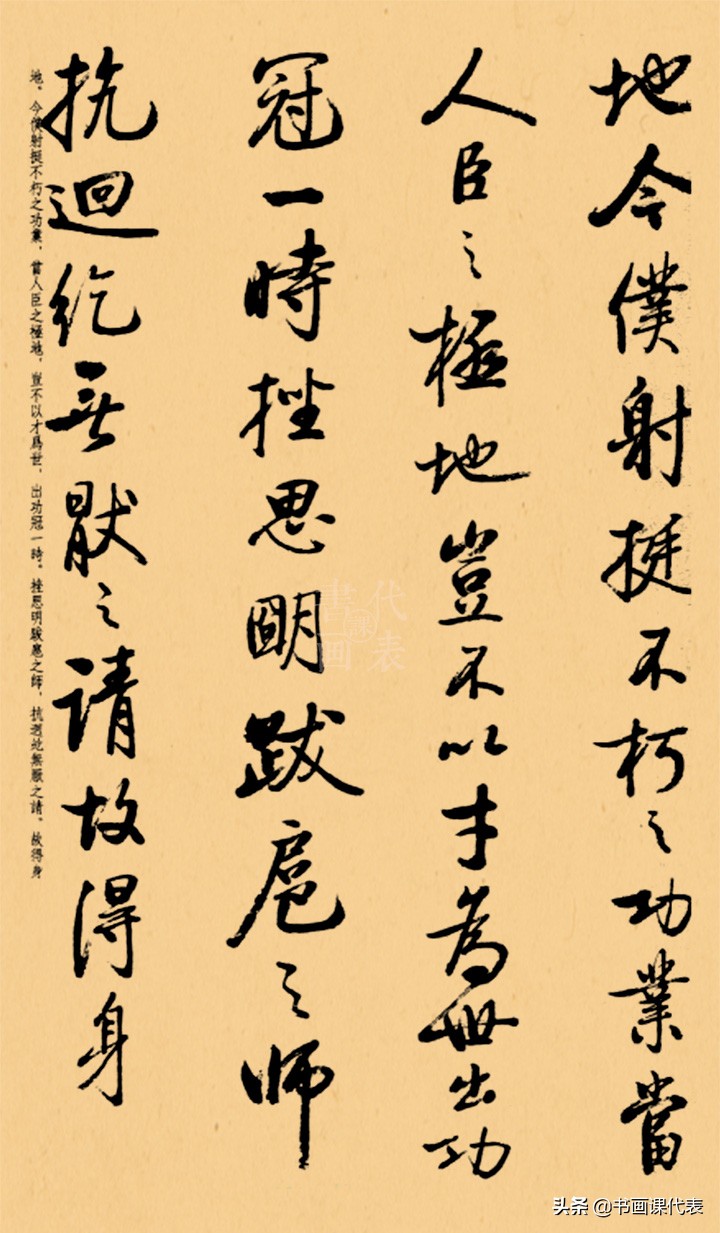 地今僕射挺不朽之功業當
人臣之極地豈不以才為世出功
冠一時挫思明跋扈之师
抗迴紇無厭之請故得身
地。今僕射挺不朽之功業，當人臣之極地，豈不以才爲世，出功冠一時。挫思明跋扈之師，抗迴紇無厭之請。故得身
書画課代表
头条 @书画课代表